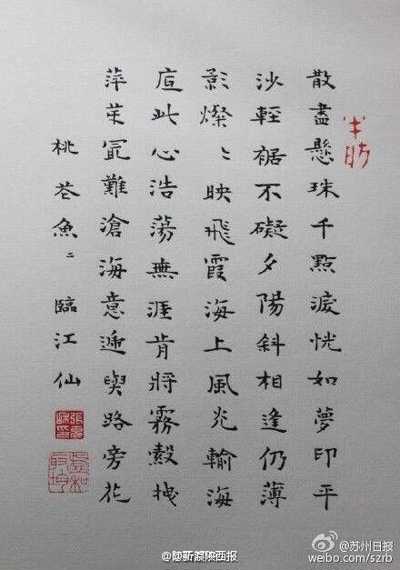 散盡懸珠千點淚恍如夢印平
沙輕裾不礙夕陽斜相逢仍薄
影燦〻映飛霞海上風光輸海
底此心浩蕩無涯肯將霧縠拽
萍芽冣難滄海意遞與路旁花
桃花魚〻臨江仙
@苏州日报
weibo.com/szrb